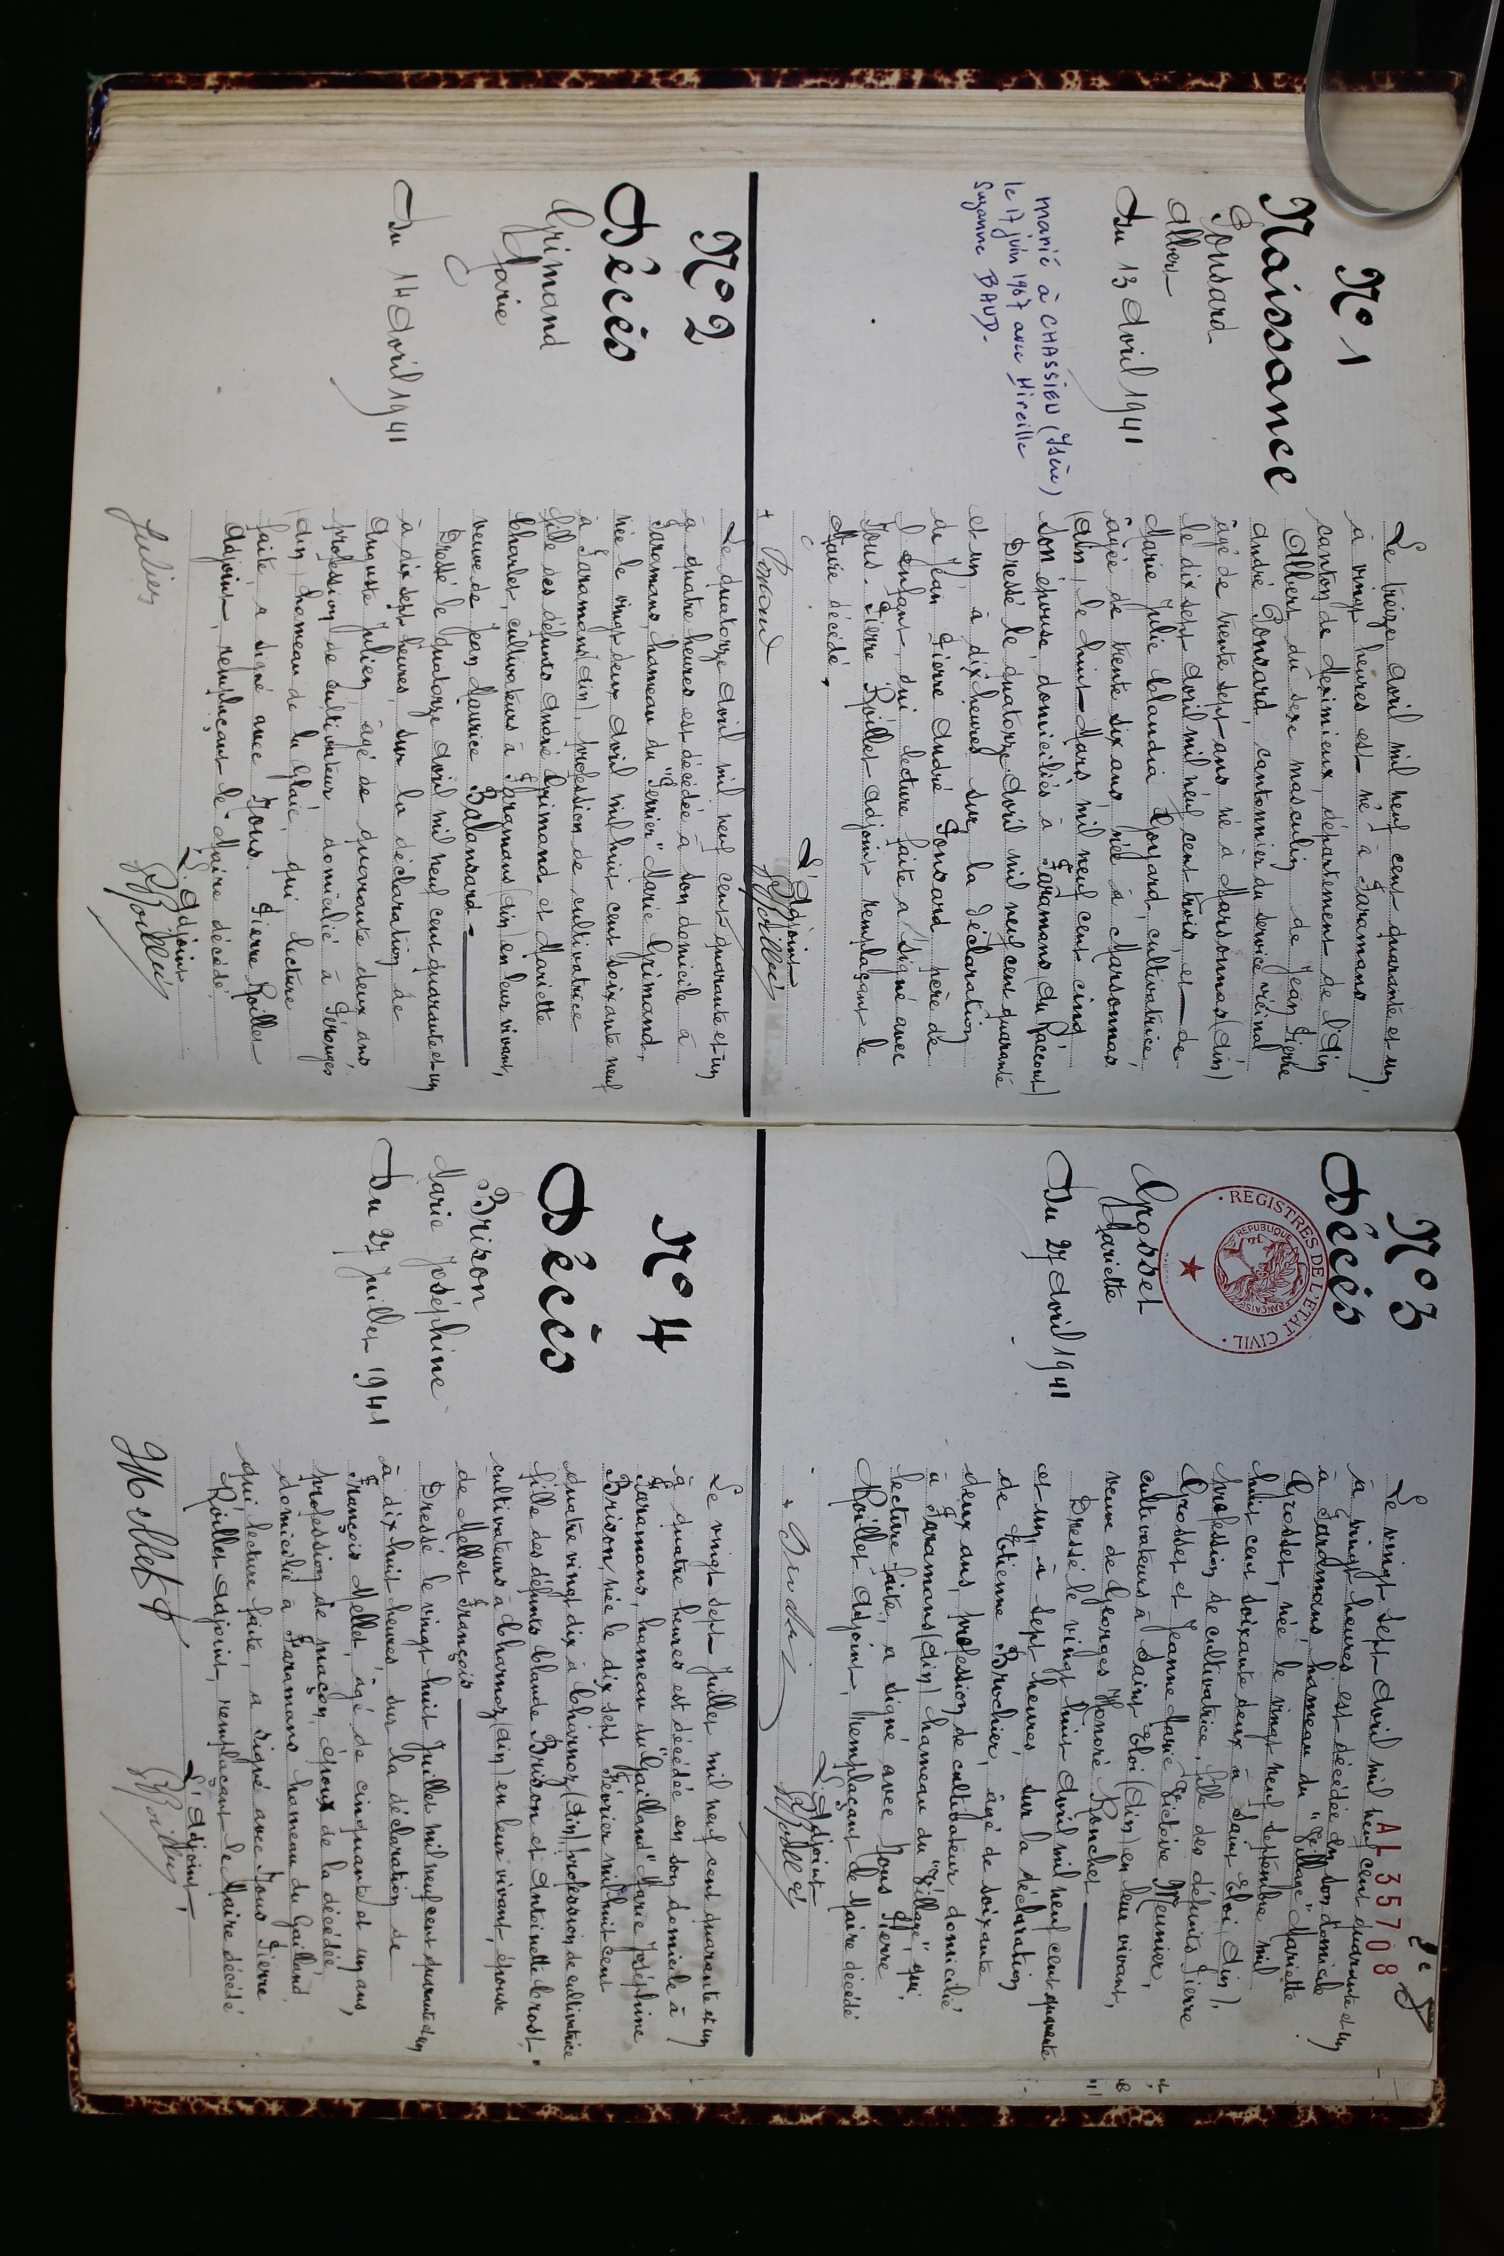 N° 1
Naissance
Ponsard
Albert
Du 13 Avril 1941
Marié à CHASSIEU (Isère)
le 17 juin 1967 avec Mireille
Suzanne BAUD.
Le treize Avril mil neuf cent quarante et un,
à vingt heures est né à Faramans
canton de Meximieux, département de l'Ain
Albert, du sexe masculin de Jean Pierre
André Ponsard, cantonnier du service vicinal
âgé de trente sept ans né à Marsonnas (Ain)
le dix sept Avril mil neuf cent trois, et de
Marie Julie Claudia Goyard, cultivatrice,
âgée de trente six ans, née à Marsonnas
(Ain) le huit Mars mil neuf cent cinq
son épouse, domiciliés à Faramans (du Paccout)
Dressé le quatorze Avril mil neuf cent quarante
et un, à dix heures sur la déclaration
de Jean Pierre André Ponsard, père de
l'enfant, qui lecture faite, a signé avec
Nous. Pierre Roillet adjoint remplaçant le
Maire décédé.
L'Adjoint
N° 2
Décès
Grimand
Marie
Du 14 Avril 1941
Le quatorze Avril mil neuf cent quarante et un
à quatre heures est décédée à son domicile à
Faramans, hameau du "Perrier" Marie Grimand,
née le vingt deux Avril mil huit cent soixante neuf
à Faramans (Ain), profession de cultivatrice
fille des défunts André Grimand et Mariette
cultivateurs à Faramans (Ain) en leur vivant,
veuve de Jean Maurice Balansard
Dressé le quatorze Avril mil neuf cent quarante et un
à dix sept heures, sur la déclaration de
Auguste Julien, âgé de quarante deux ans,
profession de cultivateur domicilié à Pérouges
(Ain) hameau de la Glaie, qui, lecture
faite a signé avec Nous. Pierre Roillet
Adjoint, remplaçant le Maire décédé,
L'Adjoint
Julien
N° 3
Décès
Grosset
Mariette
REGISTRES DE L'ETAT CIVIL
REPUBLIQUE FRANÇAISE
Du 27 Avril 1941
AL35708
Le vingt sept Avril mil neuf cent quarante et un
à vingt heures est décédée en son domicile
à Faramans, hameau du "Village" Mariette
Grosset, née le vingt neuf septembre mil
huit cent soixante deux à Saint Eloi (Ain),
profession de cultivatrice, fille des défunts Pierre
Grosset et Jeanne Marie Victoire Meunier,
cultivateurs à Saint Eloi (Ain) en leur vivant,
veuve de Georges Honoré Ronchet
Dressé le vingt huit Avril mil neuf cent quarante
et un, à sept heures, sur la déclaration
de Etienne Brochier, âgé de soixante
deux ans, profession de cultivateur domicilié
à Faramans (Ain) hameau du "Village", qui,
lecture faite, a signé avec Nous Pierre
Roillet adjoint, remplaçant le Maire décédé
L'Adjoint
N° 4
Décès
Brison
Marie Joséphine
Du 27 Juillet 1941
Le vingt sept Juillet mil neuf cent quarante et un
à quatre heures est décédée en son domicile à
Faramans, hameau du "Gailland" Marie Joséphine
Brison, née le dix sept Février mil huit cent
quatre vingt dix à Charnoz (Ain) profession de cultivatrice
fille des défunts Claude Brison et Antoinette Crost,
cultivateurs à Charnoz (Ain) en leur vivant, épouse
de Mellet François
Dressé le vingt huit Juillet mil neuf cent quarante et un
à dix-huit heures, sur la déclaration de
François Mellet, âgé de cinquante et un ans,
profession de maçon, époux de la décédée
domicilié à Faramans hameau du Gailland,
qui lecture faite, a signé avec Nous Pierre
Roillet adjoint, remplaçant le Maire décédé
L'Adjoint